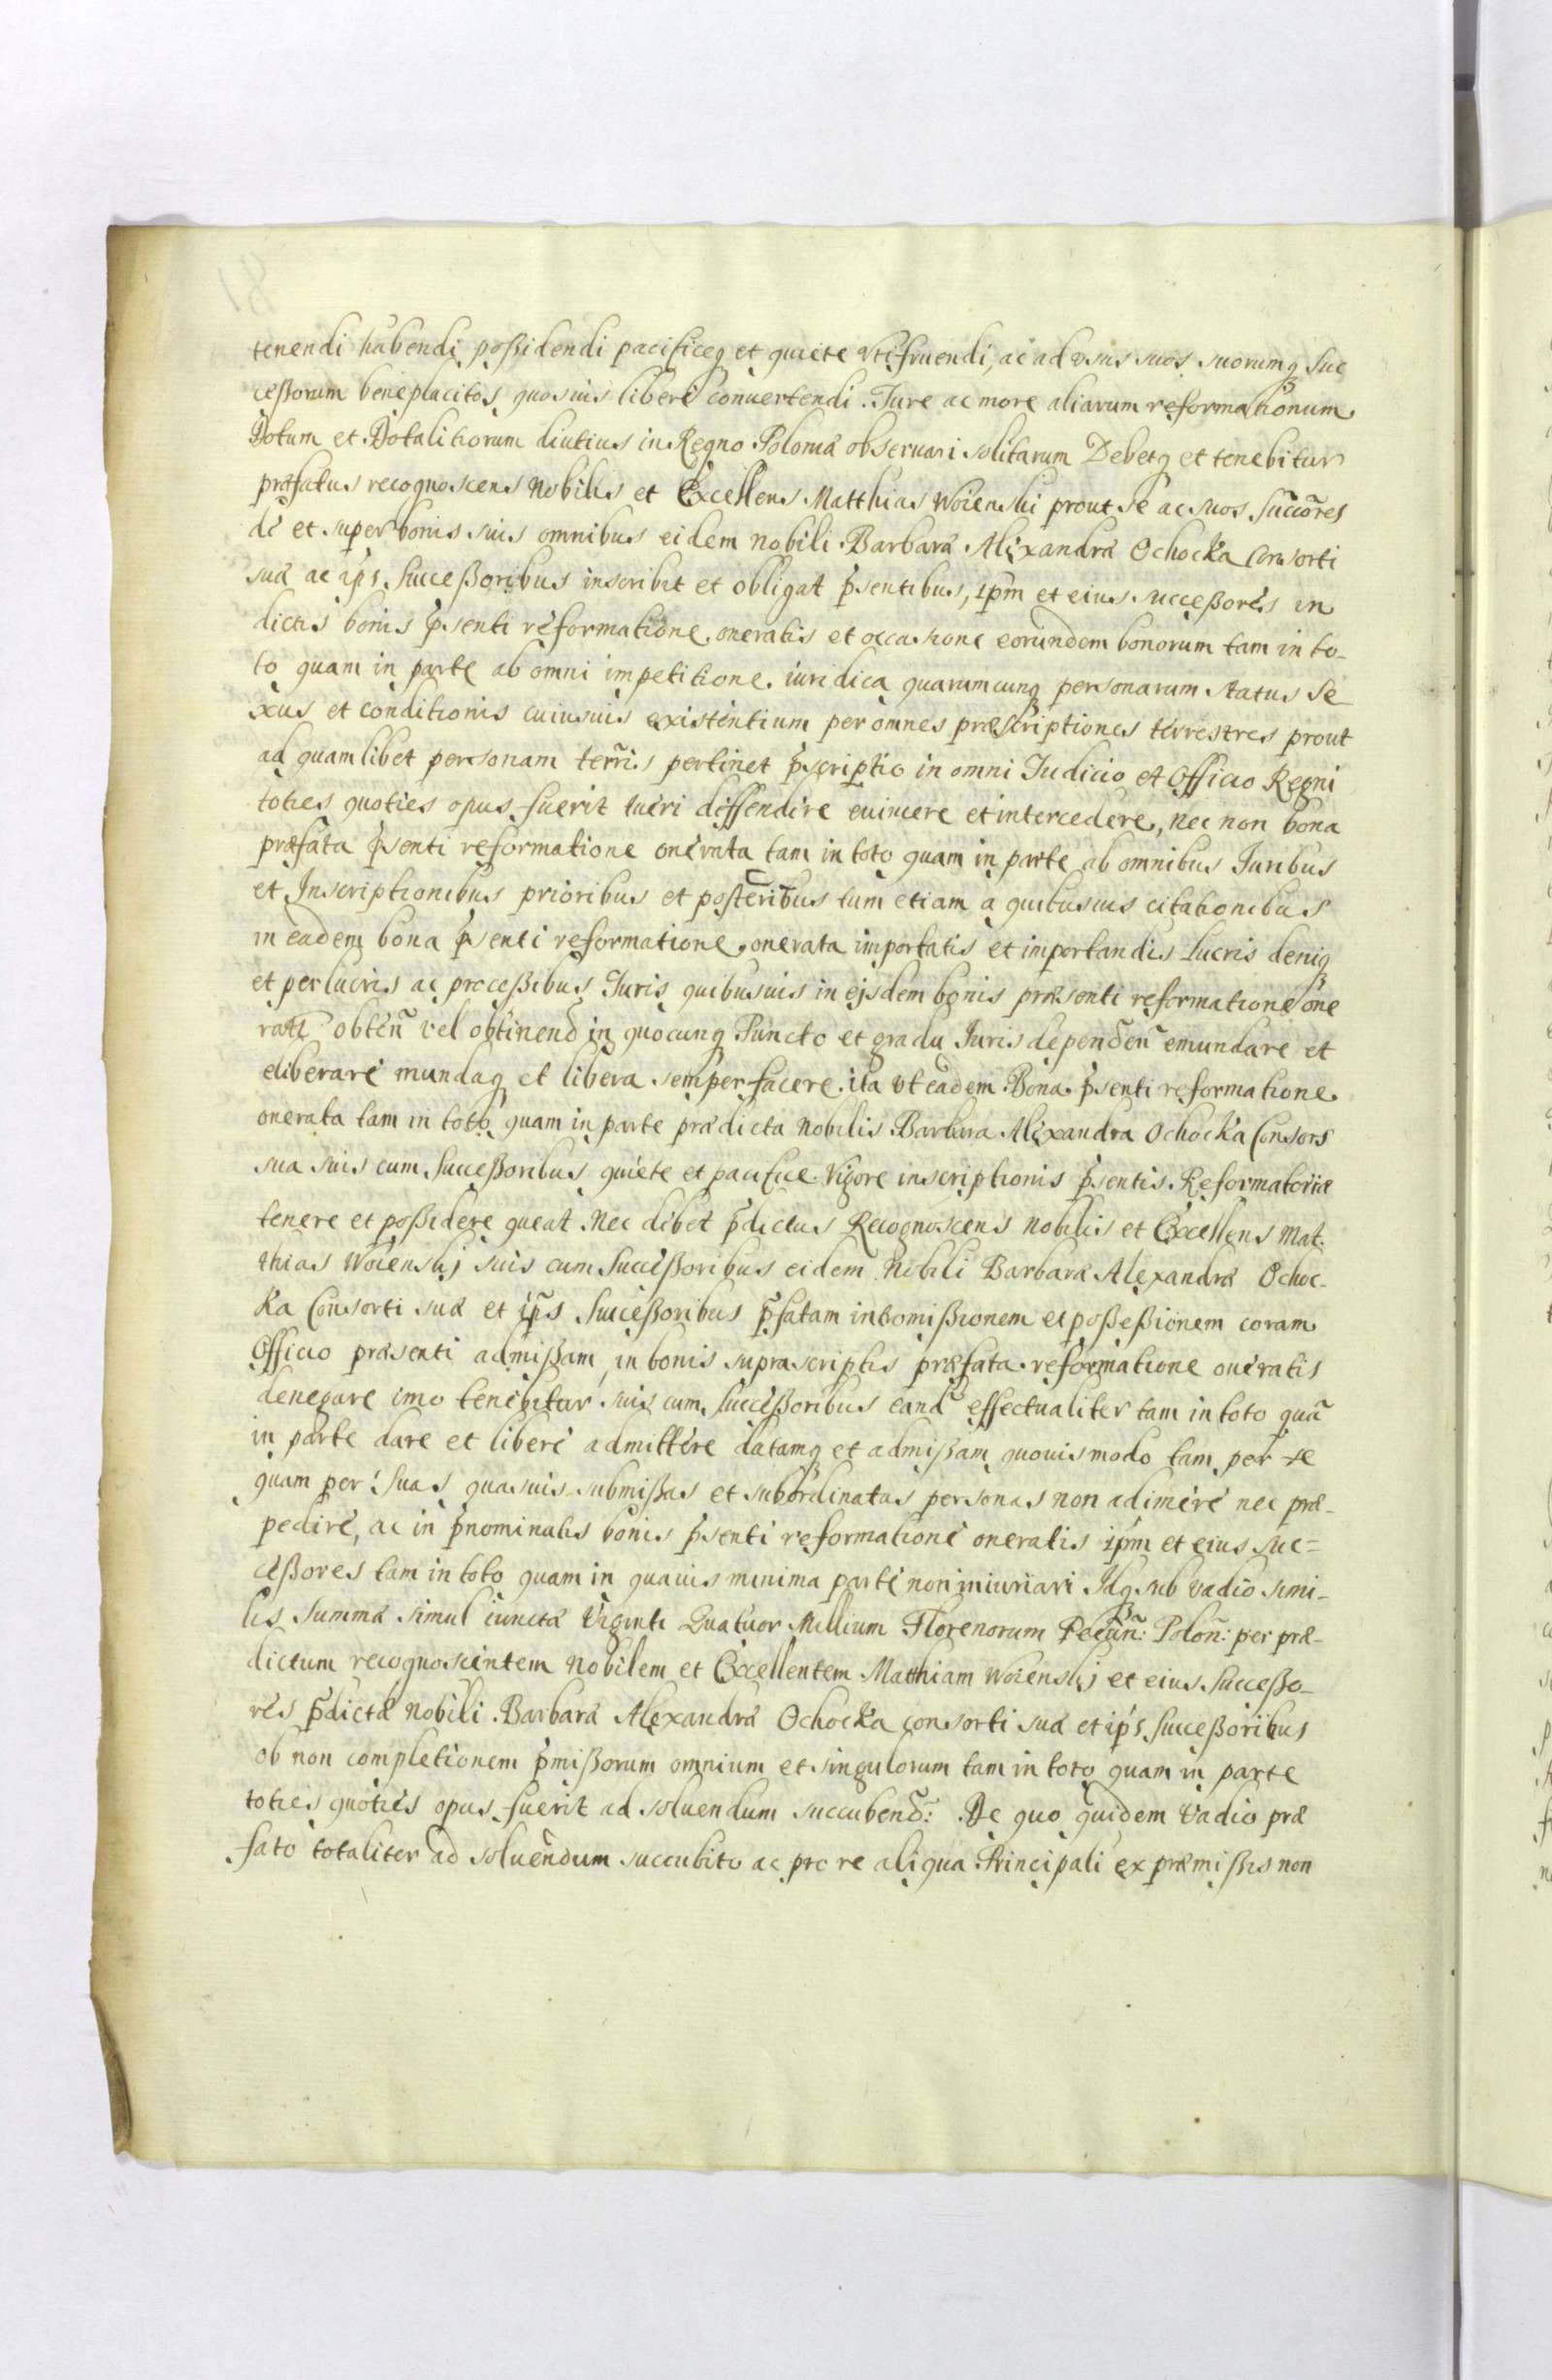 tenendi habendi possidendi pacificeq et quiete vtifruendi, ac ad vsus suos suorumq Suc
cessorum beneplacitos quosuis libere conuertendi. Jure ac more aliarum reformationum
Dotum et Dotalitiorum diutius in Regno Poloniæ obseruari solitarum Debetq et tenebitur
præfatus recognoscens Nobilis et Excellens Matthias Woienski prout se ac suos Succ̃ores
de et super bonis suis omnibus eidem nobili Barbaræ Alexandræ Ochocka Consorti
suæ ac ip̃s Successoribus inscribit et obligat p̃sentibus, ip̃m et eius successores in
dictis bonis p̃senti reformatione oneratis et occasione eorundem bonorum tam in to-
to quam in parte ab omni impetitione iuridica quarumcunq personarum status se
xus et conditionis cuiusuis existentium per omnes præscriptiones terrestres prout
ad quamlibet personam terr̃is pertinet p̃scriptio in omni Judicio et Officio Regni
toties quoties opus fuerit tueri deffendere euincere et intercedere, nec non bona
præfata p̃senti reformatione onerata tam in toto quam in parte ab omnibus Juribus
et Inscriptionibus prioribus et posteribus tum etiam a quibusuis citationibus
in eadem bona p̃senti reformatione onerata importatis et importandis Lucris deniq
et perlucris ac processibus Juris quibusuis in eisdem bonis præsenti reformatione one
rati obteñ vel obtinend̃ in quocunq Puncto et gradu Juris dependeñ emundare et
eliberare mundaq et libera semper facere ita vt eadem Bona p̃senti reformatione
onerata tam in toto quam in parte prædicta Nobilis Barbara Alexandra Ochocka Consors
sua suis cum Successoribus quiete et pacifice Vigore inscriptionis p̃sentis Reformatoriæ
tenere et possidere queat. Nec debet p̃dictus Recognoscens Nobilis et Excellens Mat-
thias Woienskj suis cum Successoribus eidem Nobili Barbaræ Alexandræ Ochoc-
ka Consorti suæ et ip̃s Successoribus p̃fatam intromissionem et possessionem coram
Officio præsenti admissam, in bonis suprascriptis præfata reformatione oneratis
denegare imo tenebitur suis cum Successoribus eand̃ effectualiter tam in toto quã
in parte dare et libere admittere datamq et admissam quouis modo tam per se
quam per suas quasuis submissas et subordinatas personas non adimere nec præ-
pedire, ac in p̃nominatis bonis p̃senti reformatione oneratis ip̃m et eius suc=
cessores tam in toto quam in quauis minima parte non iniuriari Idq sub vadio simi-
lis Summæ simul iunctæ Viginti Quatuor Millium Florenorum Pecuñ: Poloñ: per præ-
dictum recognoscentem Nobilem et Excellentem Mathiam Woienskj et eius Successo-
res p̃dictæ Nobili Barbaræ Alexandræ Ochocka consorti suæ et ip̃s Successoribus
ob non completionem p̃missorum omnium et singulorum tam in toto quam in parte
toties quoties opus fuerit ad soluendum succubend̃: De quo quidem Vadio præ
fato totaliter ad soluendum succubito ac pro re aliqua Principali ex præmissis non